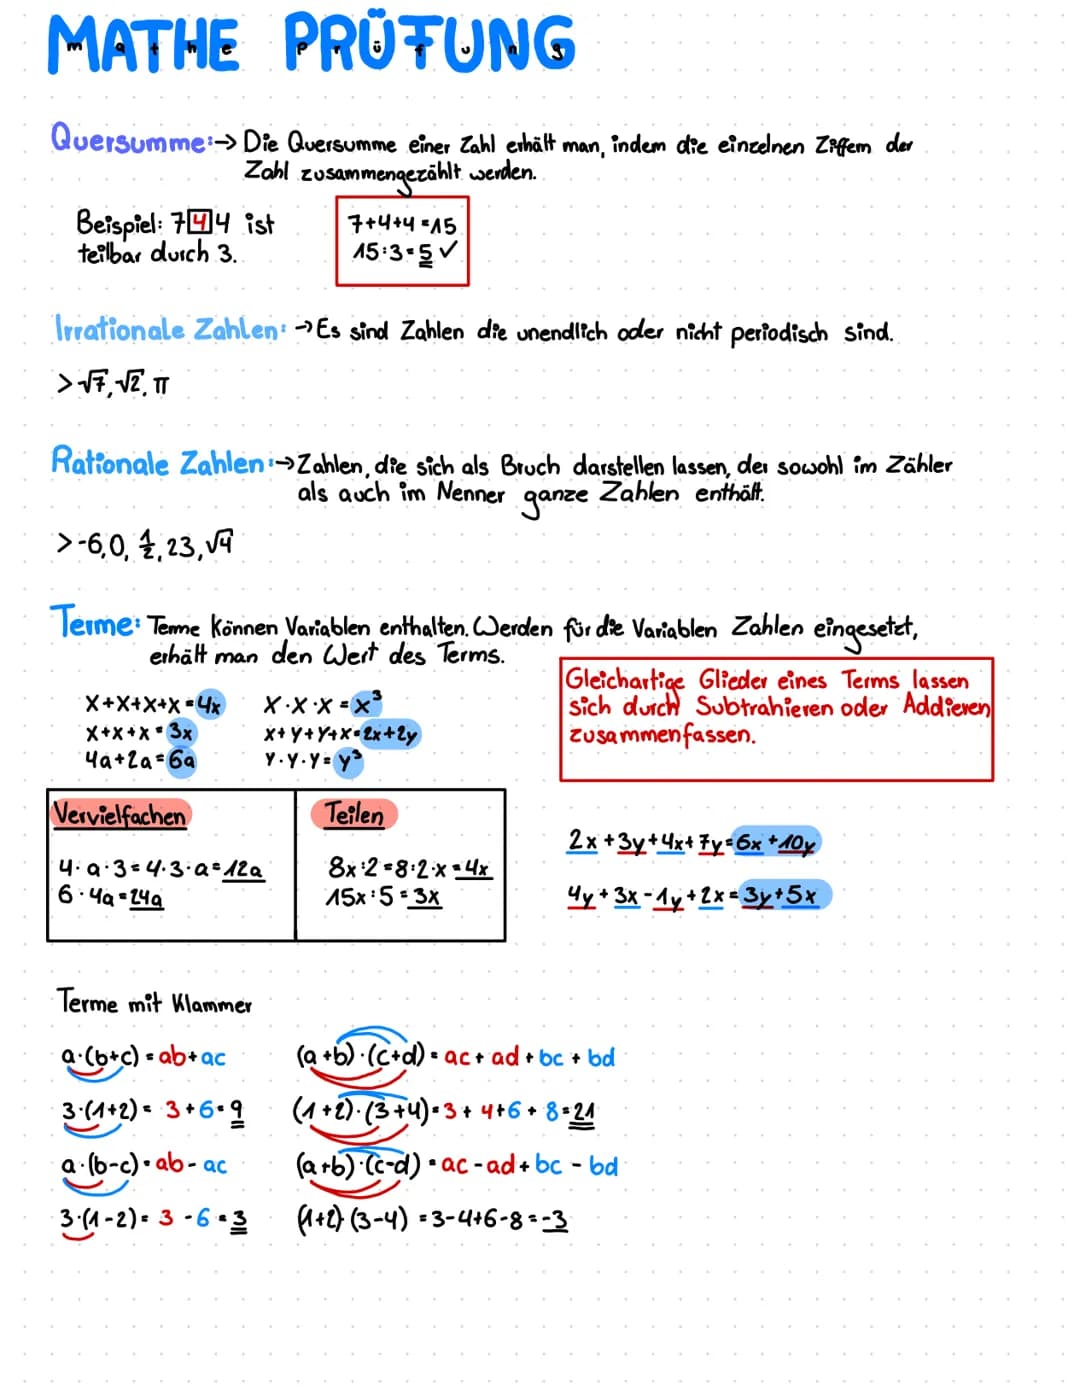 MATHE PRÜFUNG
mathe prüfung
Quersumme:→ Die Quersumme einer Zahl erhält man, indem die einzelnen Ziffern der
Zahl zusammengezählt werden.
Beispiel: 744 ist
teilbar durch 3.
7+4+4=15
15:3=5 ✓
Irrationale Zahlen: → Es sind Zahlen die unendlich oder nicht periodisch sind.
> √7, √2, π
Rationale Zahlen:→ Zahlen, die sich als Bruch darstellen lassen, der sowohl im Zähler
als auch im Nenner ganze Zahlen enthält.
> -6,0, 1/2, 23, √4
Terme: Terme können Variablen enthalten. Werden für die Variablen Zahlen eingesetzt,
erhält man den Wert des Terms.
x+x+x+x=4x
x+x+x=3x
4a+2a=6a
x·x·x=x³
x+y+y+x=2x+2y
y·y·y=y³
Gleichartige Glieder eines Terms lassen
sich durch Subtrahieren oder Addieren
zusammenfassen.
Vervielfachen
4·a·3=4·3·a=12a
6·4a=24a
Teilen
8x:2=8:2·x=4x
15x:5=3x
2x+3y+4x+7y=6x+10y
4y+3x-1y+2x=3y+5x
Terme mit Klammer
a·(b+c)=ab+ac
(a+b)·(c+d)=ac+ad+bc+bd
3·(1+2)=3+6=9
(1+2)·(3+4)=3+4+6+8=21
a·(b-c)=ab-ac
(a+b)·(c-d)=ac-ad+bc-bd
3·(1-2)=3-6=3
(1+2)·(3-4)=3-4+6-8=-3